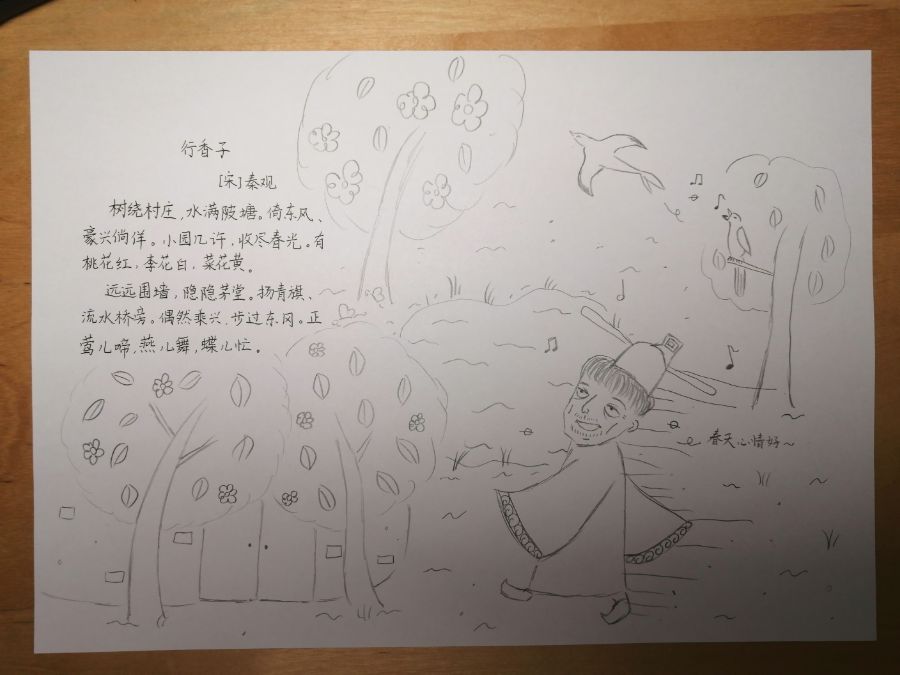 行香子
[宋]秦观
树绕村庄,水满陂塘。倚东风、
豪兴倘佯。小园几许,收尽春光。有
桃花红,李花白,菜花黄。
远远围墙,隐隐茅堂。扬青旗、
流水桥旁。偶然乘兴,步过东冈。正
莺儿啼,燕儿舞,蝶儿忙。
春天心情好~